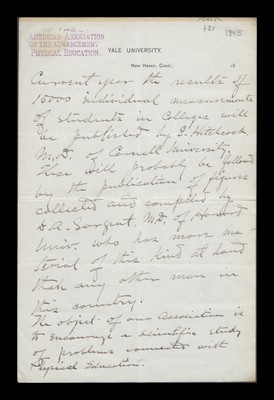 OF THE
AMERICAN ASSOCIATION
FOR THE ADVANCEMENT
PHYSICAL EDUCATION.
YALE UNIVERSITY,
New Haven, Conn., 18
Current year the results of
15000 individual measurements
of students in Colleges will
be published by E. Hitchcock
M.D. of Cornell University.
These will probably be followed
by the publication of figures
collected and compiled by
D. A. Sargent, M.D. of Harvard
Univ. who has more ma-
terial of this kind at hand
than any other man in
this country.
The object of our Association is
to encourage a scientific study
of problems connected with
Physical Education.